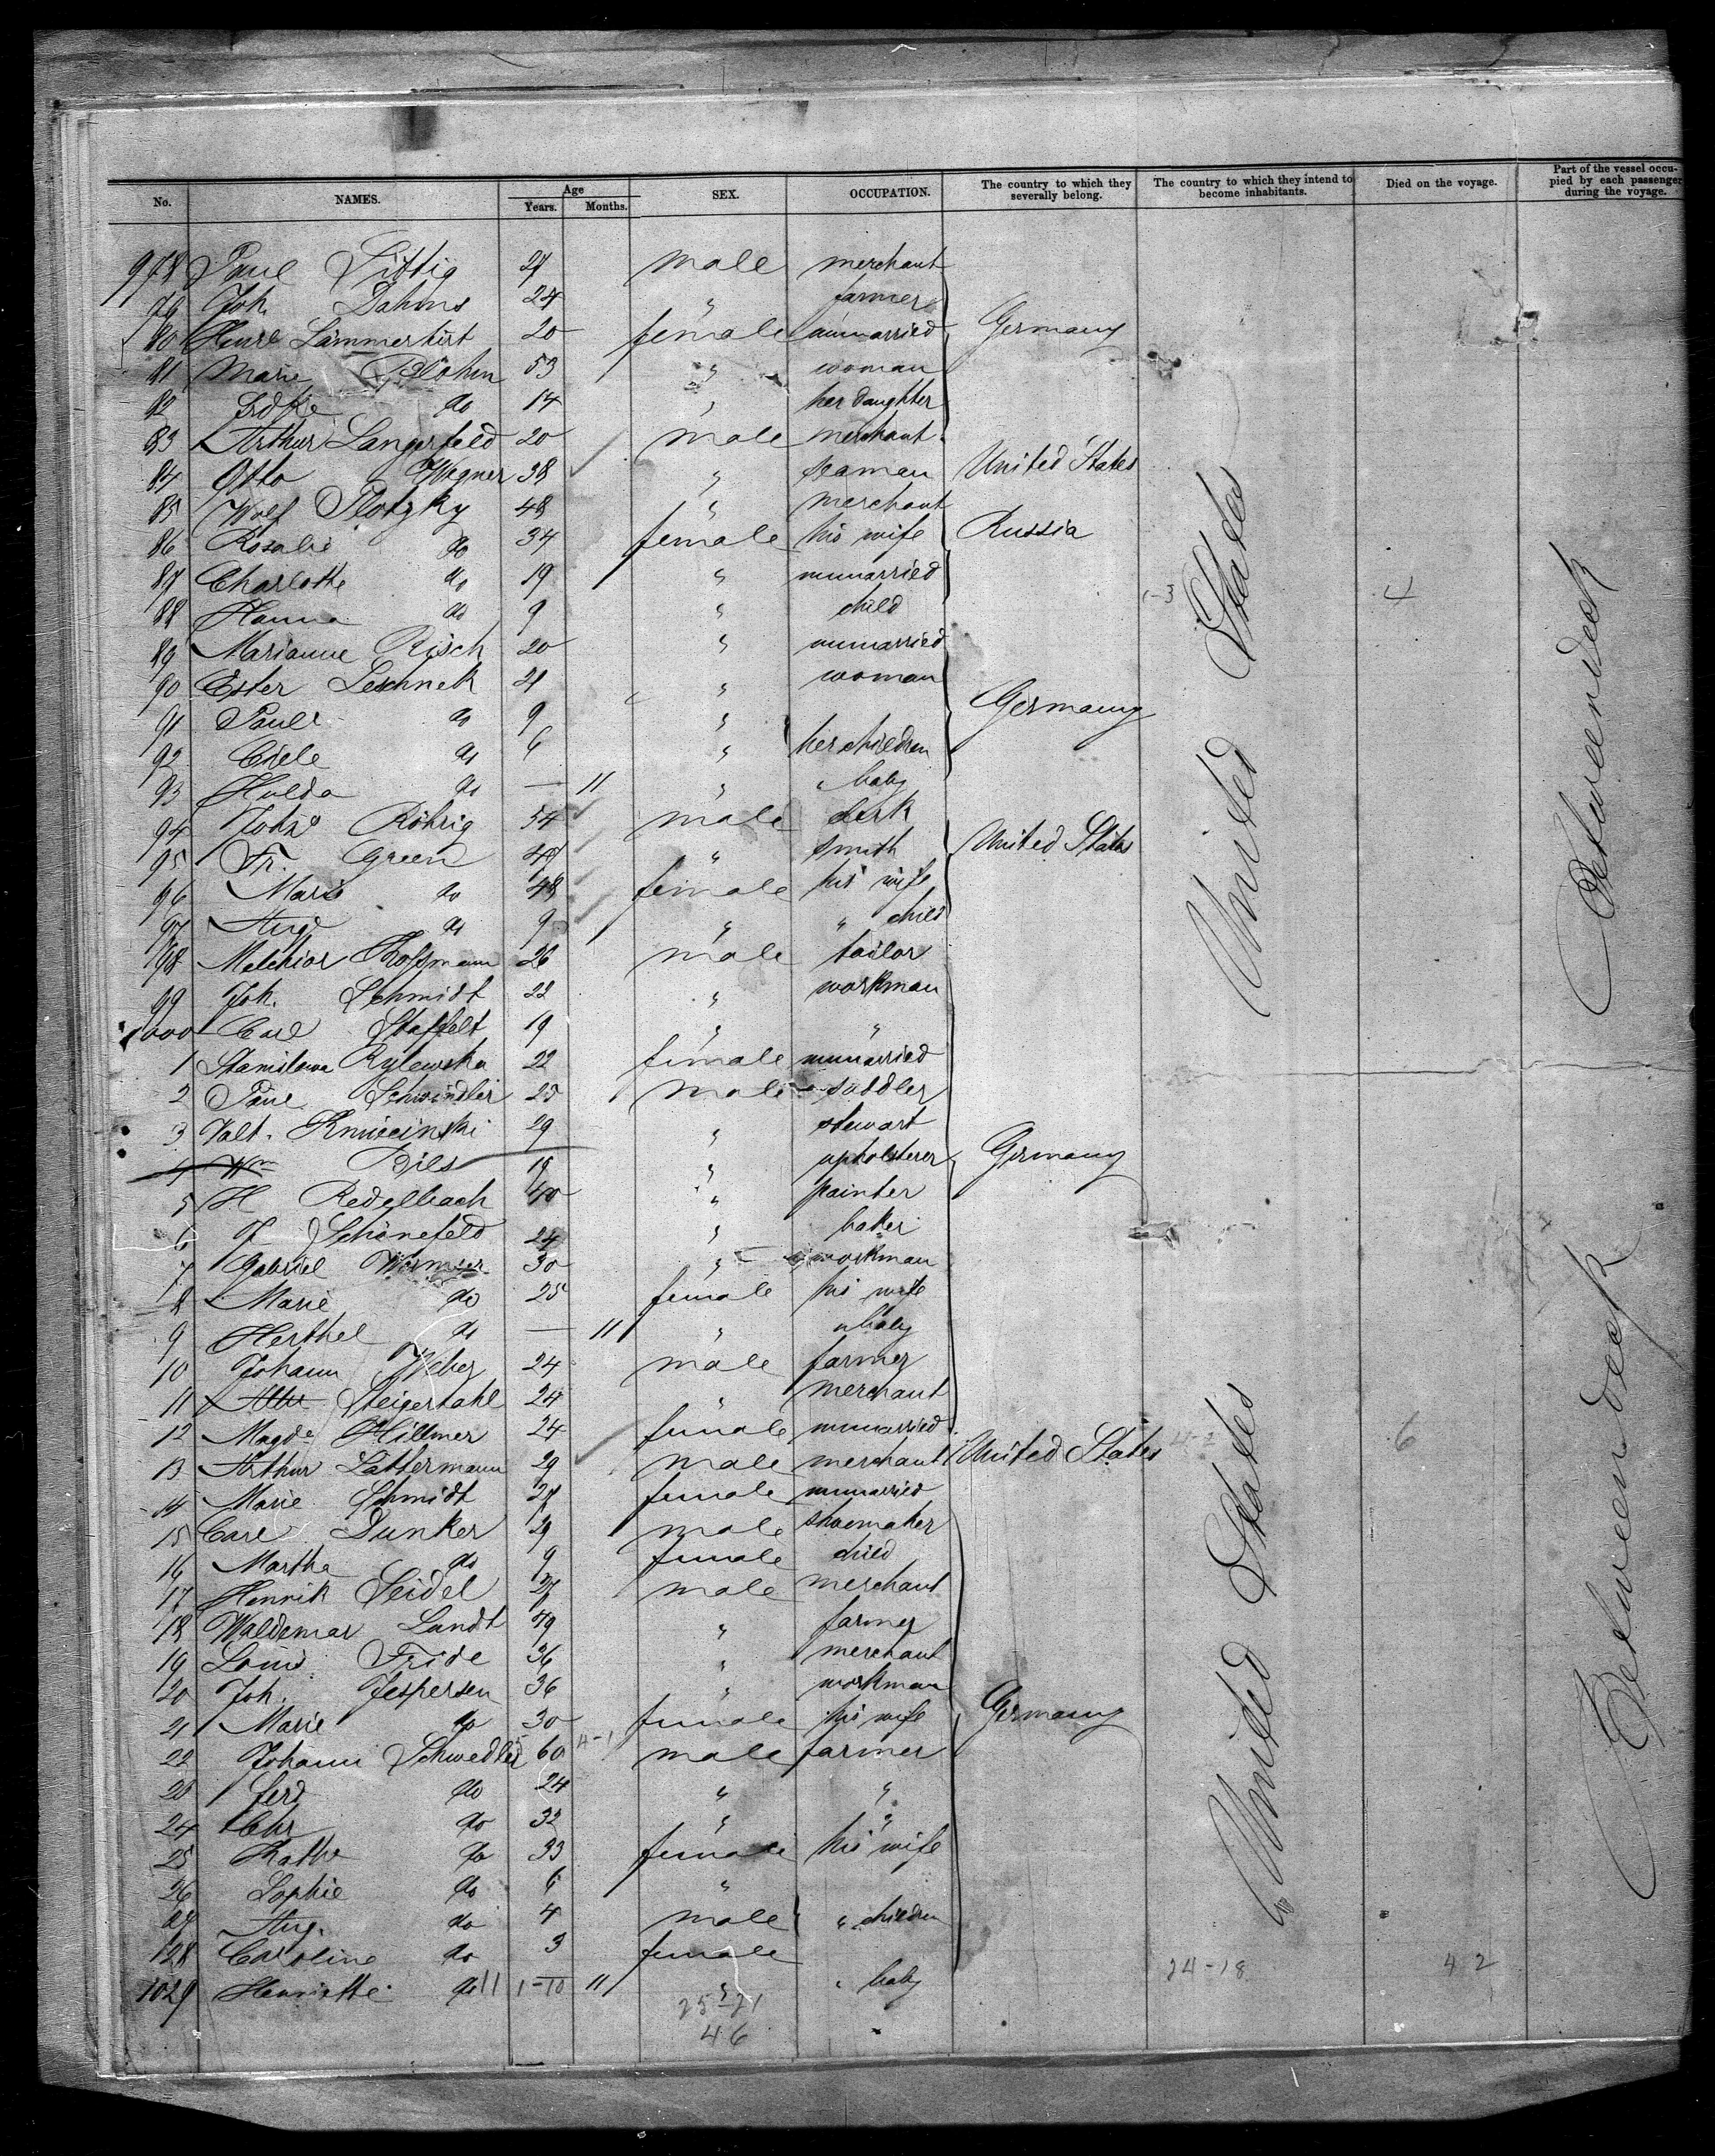 No. NAMES. Age Years. Months. SEX. OCCUPATION. The country to which they severally belong. The country to which they intend to become inhabitants. Died on the voyage. Part of the vessel occupied by each passenger during the voyage.
978 Paul Sittig 27 male merchant
79 Joh. Dahms 24 " farmer
80 Lämmerhirt 20 female unmarried Germany
81 Marie 53 " woman
82 do 14 " her daughter
83 Arthur Langerfeld 20 male merchant
84 Otto Wegner 38 " seaman United States
85 Wolf Plotzky 48 " merchant
86 Rosalie do 34 female his wife Russia
87 Charlotte do 19 " unmarried
88 Hanna do 9 " child
89 Marianne Risch 20 " unmarried
90 Ester Leschnek 21 " woman
91 do 9 " Germany
92 do 6 " her children
93 Hulda do — 11 " " baby
94 Röhrig 54 male clerk
95 Fr. Green 49 " smith United States
96 Marie do 48 female his wife
97 do 9 " " child
98 Melchior Hoffmann 26 male tailor
99 Joh. Schmidt 22 " workman
1000 Carl Staffelt 19 " "
1 Stanislawa Rylewska 22 female unmarried
2 Paul Schwindler 25 male saddler
3 Valt. 29 " stewart
4 Wm Dils 19 " upholsterer Germany
5 H Redelbach 40 " painter
6 Schönefeld 24 " baker
7 Gabriel Wormser 30 " workman
8 Marie do 25 female his wife
9 Herthel do — 11 " " baby
10 Johann Weber 24 male farmer
11 Steigertahl 24 " merchant
12 Magda Hillmer 24 female unmarried
13 Arthur Lattermann 29 male merchant United States
14 Marie Schmidt 27 female unmarried
15 Carl Dunker 29 male shoemaker
16 Martha do 9 female child
17 Henrik Seidel 27 male merchant
18 Waldemar Lundt 49 " farmer
19 Louis Fride 36 " merchant
20 Joh. Jespersen 36 " workman
21 Marie do 30 female his wife Germany
22 Johann Schwedler 60 male farmer
23 Ferd do 24 " "
24 Chr do 32 " "
25 Kathe do 33 female his wife
26 Sophie do 6 "
27 Aug. do 4 male " children
128 Caroline do 3 female
1029 Henriette do — 11 " " baby
United States
United States
Betweendeck
Betweendeck
4
6
24-18
42
25-21
46